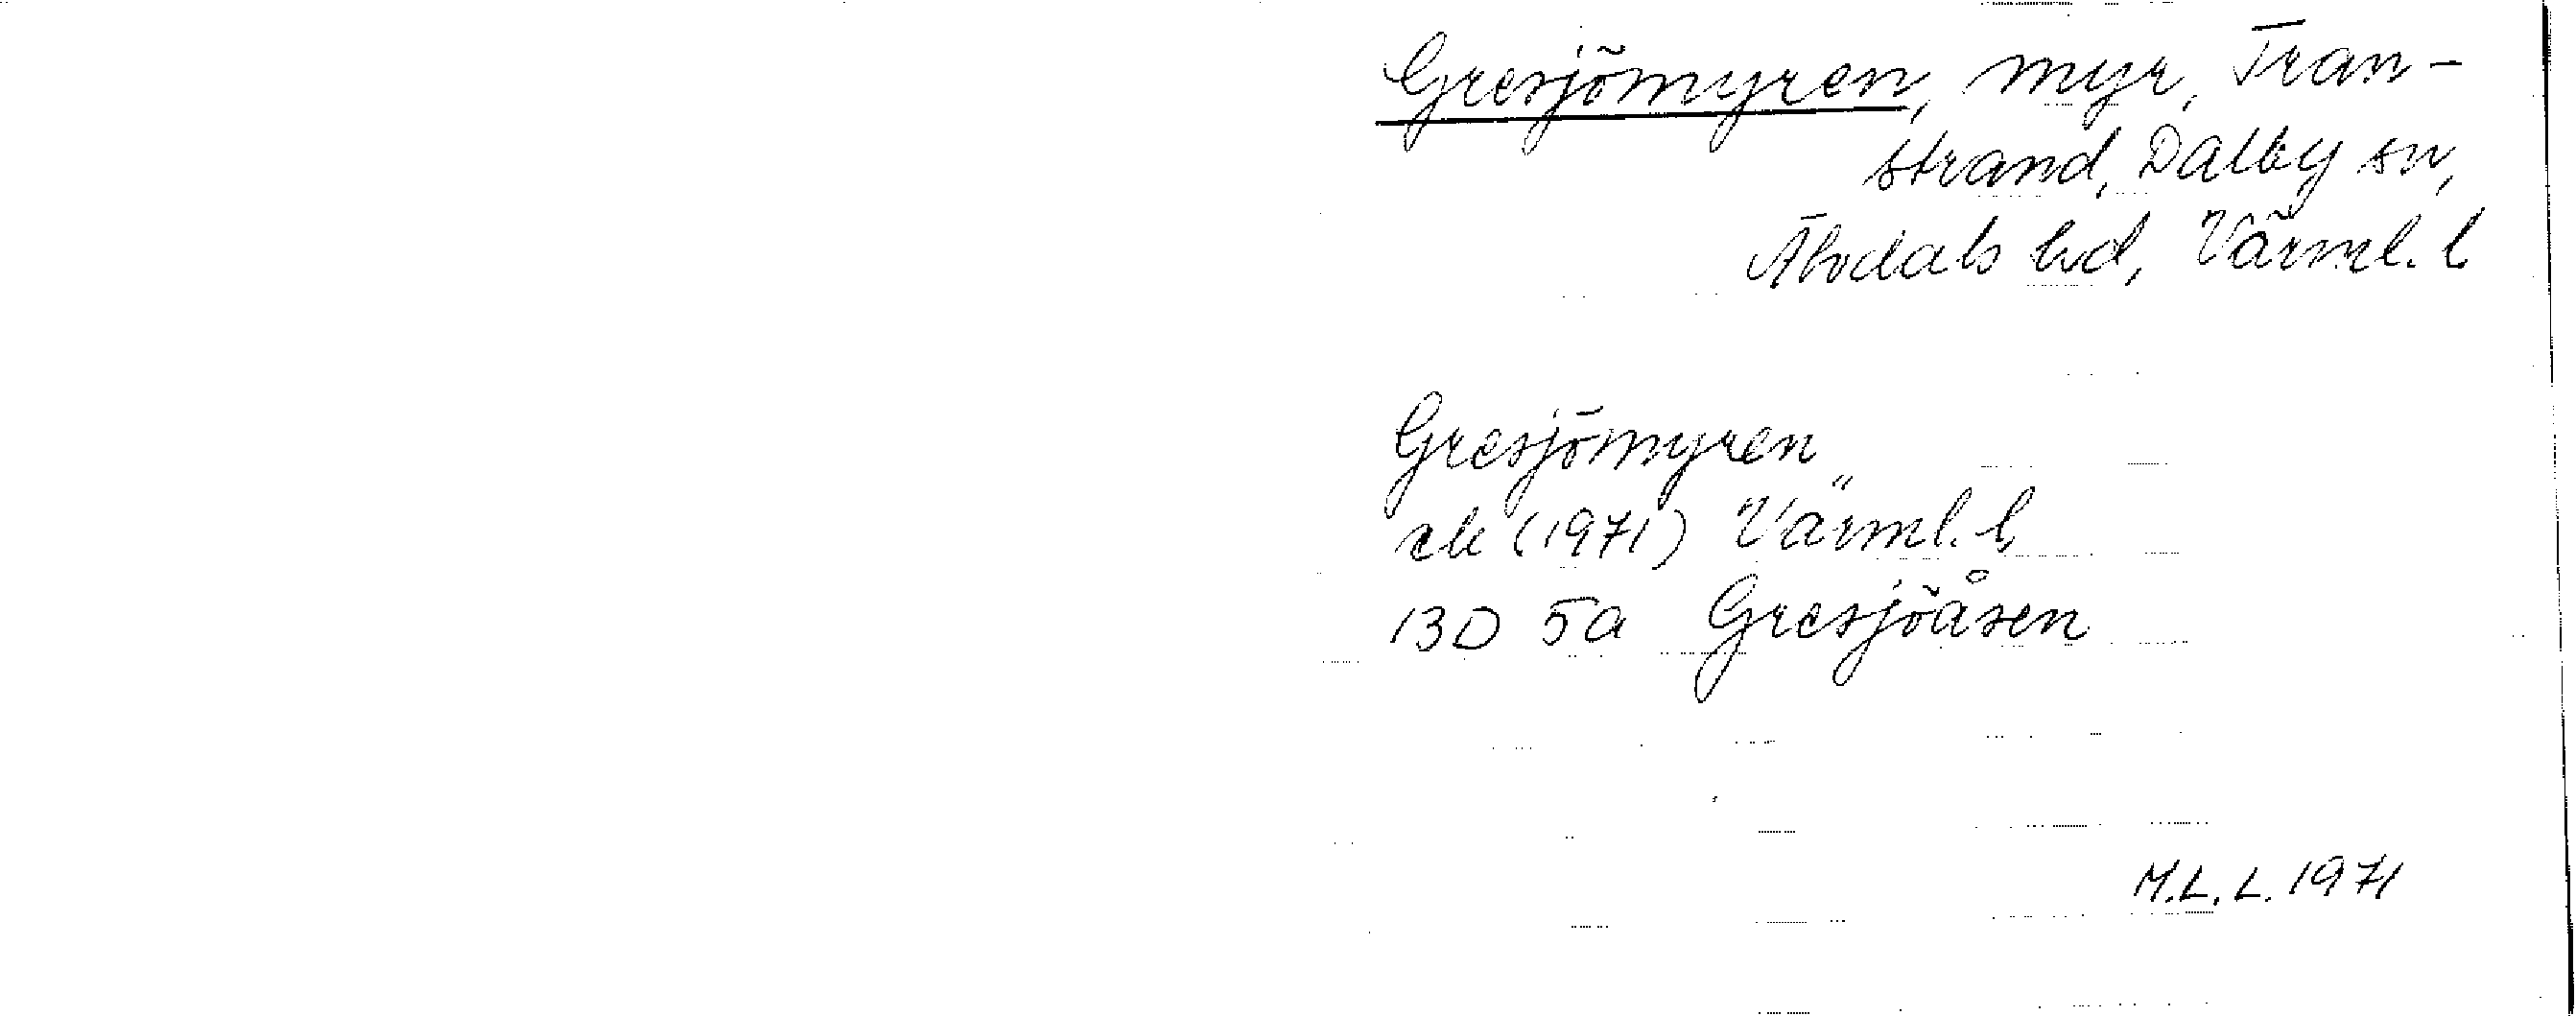 Gresjömyren, myr, Tran-
strand, Dalby sn,
Älvdals hd, Värml. l
Gresjömyren
ek (1971) Värml. l,
13D 5a Gresjöåsen
M.L.L. 1971